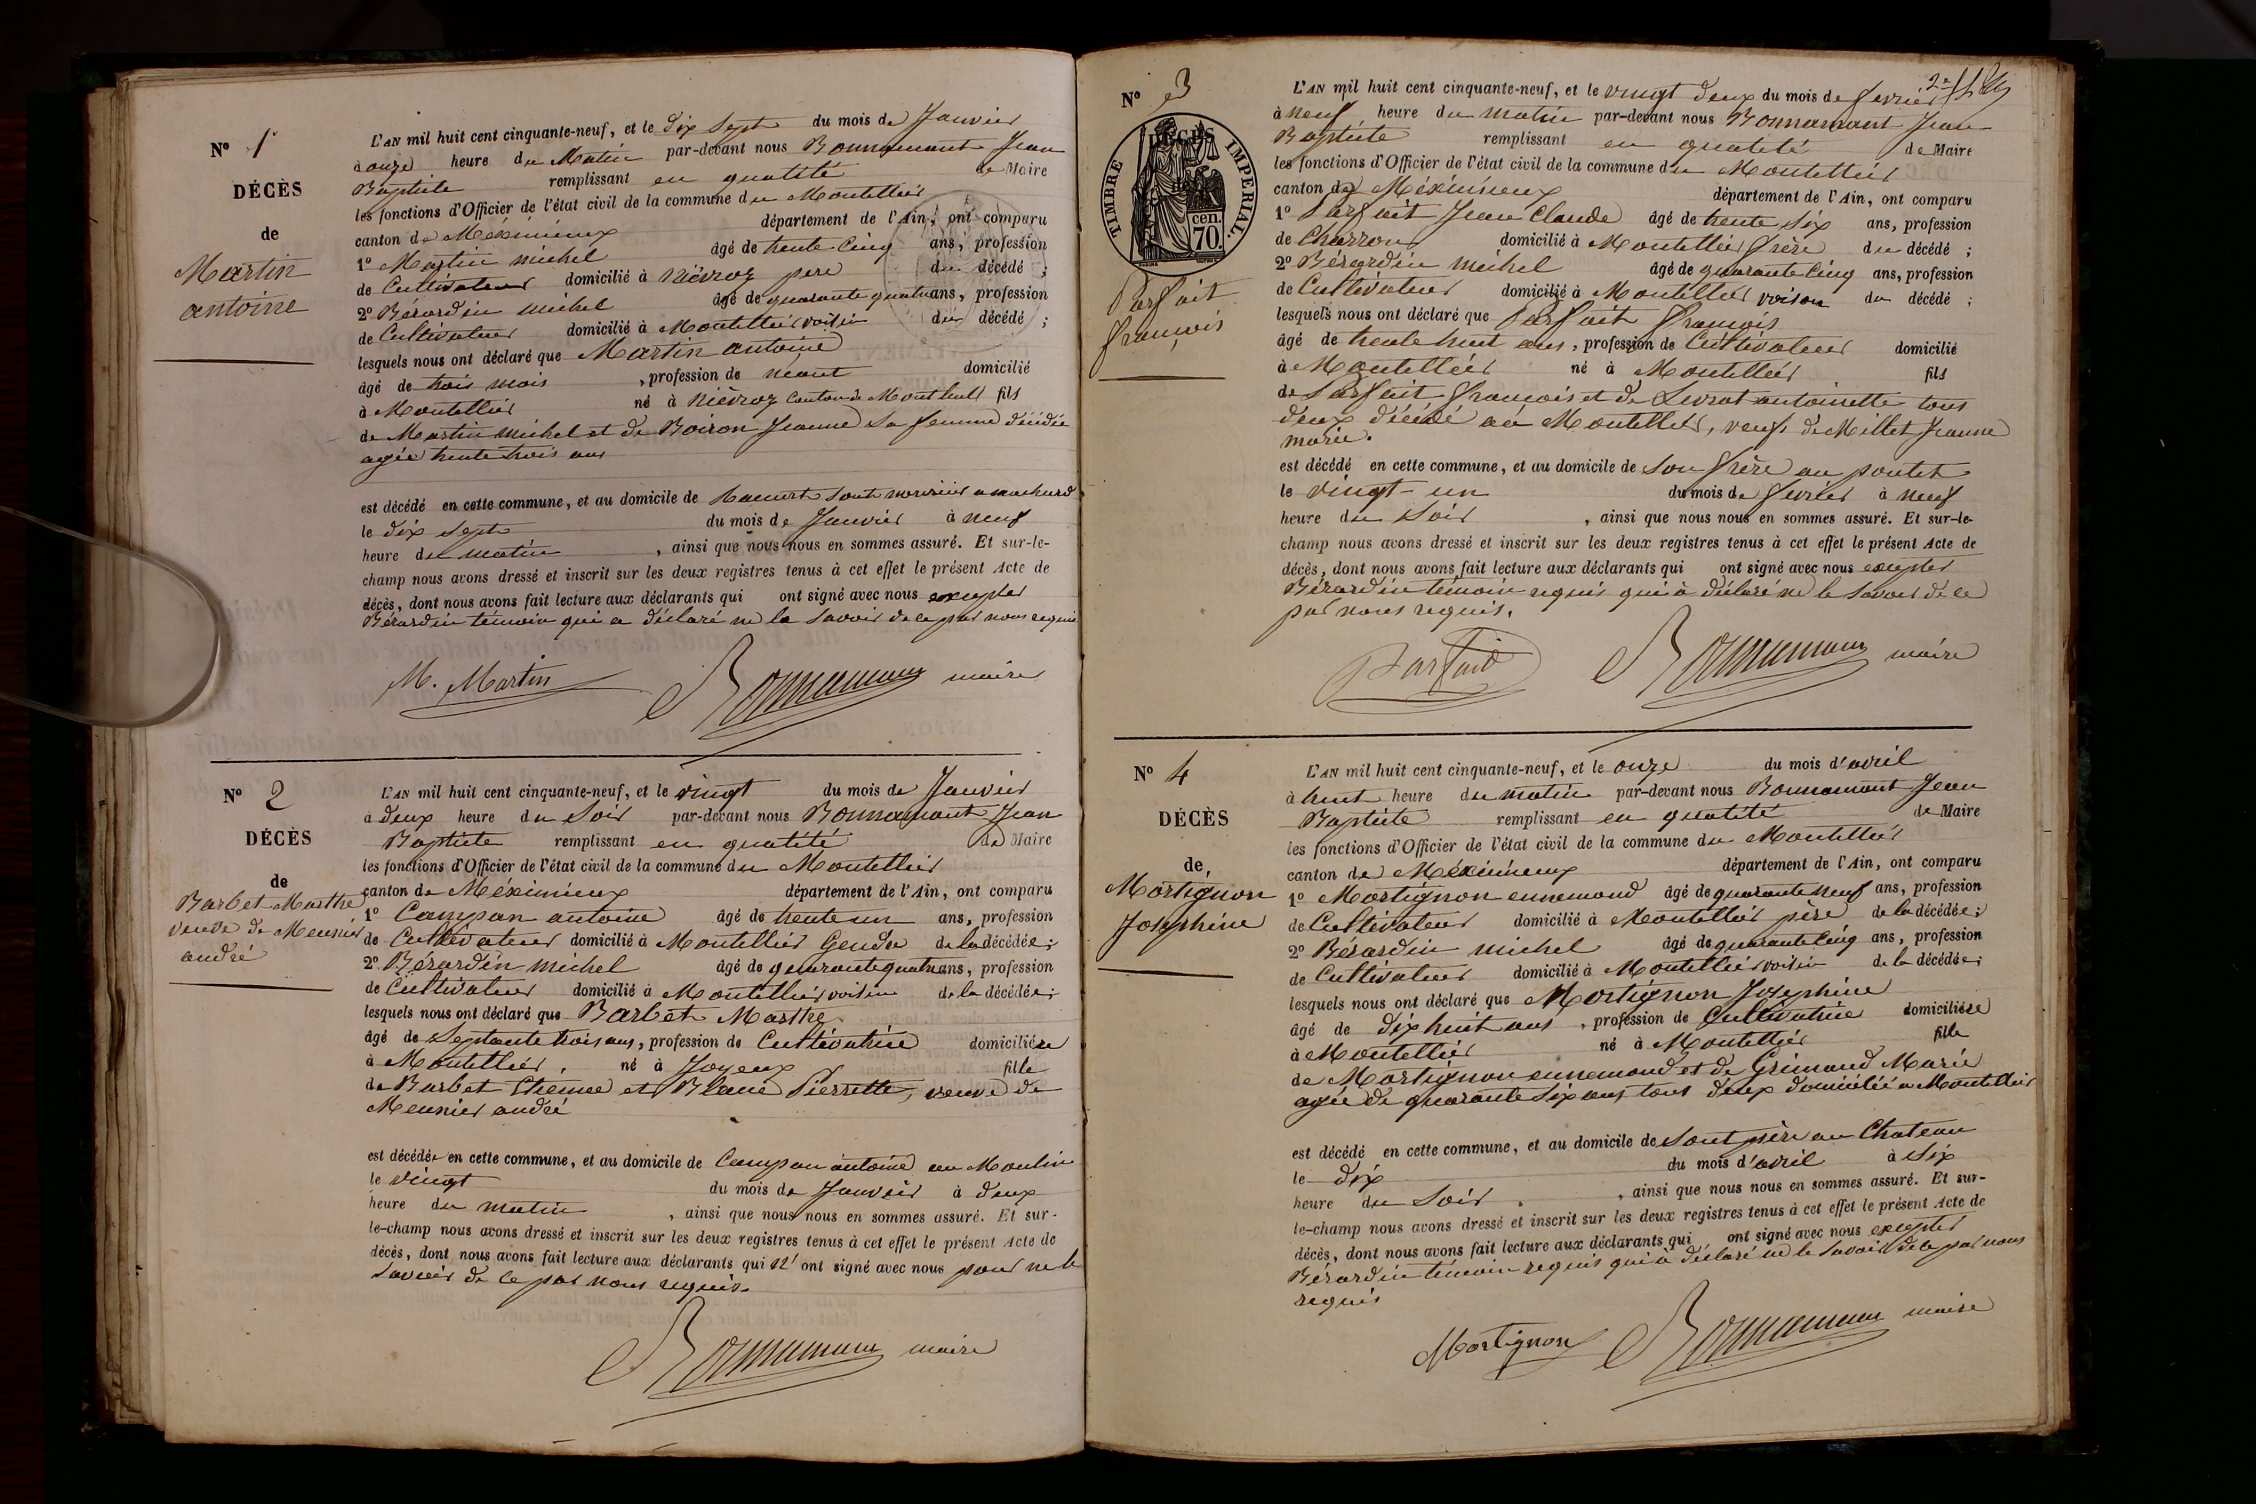 N° 1
DÉCÈS
de
Martin
antoine
L'AN mil huit cent cinquante-neuf, et le dix sept du mois de Janvier
à onze heure du Matin par-devant nous Bonnamant Jean
Baptiste remplissant en qualité de Maire
les fonctions d'Officier de l'état civil de la commune du Montellier
canton de Méximieux département de l'Ain, ont comparu
1° Martin michel âgé de trente cinq ans, profession
de Cultivateur domicilié à Niévroz pere du décédé ;
2° Bérardin michel âgé de quarante quatre ans, profession
de Cultivateur domicilié à Montellier voisin du décédé ;
lesquels nous ont déclaré que Martin antoine
âgé de trois mois , profession de neant domicilié
à Montellier né à Niévroz Canton de Montluel fils
de Martin michel et de Boiron Jeanne sa femme décédée
agée trente trois ans
est décédé en cette commune, et au domicile de nourricier
le dix sept du mois de Janvier à neuf
heure du matin , ainsi que nous nous en sommes assuré. Et sur-le-
champ nous avons dressé et inscrit sur les deux registres tenus à cet effet le présent Acte de
décès, dont nous avons fait lecture aux déclarants qui ont signé avec nous excepter
Bérardin témoin qui a déclaré ne le savoir de ce par nous requis
M. Martin Bonnamant maire
N° 2
DÉCÈS
de
Barbet Marthe
veuve de Meunier
andré
L'AN mil huit cent cinquante-neuf, et le vingt du mois de Janvier
à deux heure du Soir par-devant nous Bonnamant Jean
Baptiste remplissant en qualité de Maire
les fonctions d'Officier de l'état civil de la commune du Montellier
canton de Méximieux département de l'Ain, ont comparu
1° Campan antoine âgé de trente un ans, profession
de Cultivateur domicilié à Montellier Gendre de la décédée ;
2° Bérardin michel âgé de quarante quatre ans, profession
de Cultivateur domicilié à Montellier voisin de la décédée ;
lesquels nous ont déclaré que Barbet Marthe
âgé de Septante trois ans, profession de Cultivatrice domiciliée
à Montellier, né à Joyeux fille
de Barbet Etienne et Blanc Pierrette, veuve de
Meunier andré
est décédée en cette commune, et au domicile de Campan antoine au Moulin
le vingt du mois de Janvier à deux
heure du matin , ainsi que nous nous en sommes assuré. Et sur-
le-champ nous avons dressé et inscrit sur les deux registres tenus à cet effet le présent Acte de
décès, dont nous avons fait lecture aux déclarants qui n' ont signé avec nous pour ne le
savoir de ce par nous requis.
Bonnamant maire
N° 3
DÉCÈS
TIMBRE IMPERIAL.
cen.
70.
Parfait
françois
2e
L'AN mil huit cent cinquante-neuf, et le vingt deux du mois de fevrier
à neuf heure du matin par-devant nous Bonnamant Jean
Baptiste remplissant en qualité de Maire
les fonctions d'Officier de l'état civil de la commune du Montellier
canton de Méximieux département de l'Ain, ont comparu
1° Parfait Jean Claude âgé de trente six ans, profession
de Charron domicilié à Montellier frère du décédé ;
2° Bérardin michel âgé de quarante cinq ans, profession
de Cultivateur domicilié à Montellier voison du décédé ;
lesquels nous ont déclaré que Parfait françois
âgé de trente huit ans, profession de Cultivateur domicilié
à Montellier né à Montellier fils
de Parfait françois et de antoinette tous
deux décédé Montellier, veuf de Millet Jeanne
marie.
est décédé en cette commune, et au domicile de son frère au pontet
le vingt-un du mois de fevrier à neuf
heure du Soir , ainsi que nous nous en sommes assuré. Et sur-le-
champ nous avons dressé et inscrit sur les deux registres tenus à cet effet le présent Acte de
décès, dont nous avons fait lecture aux déclarants qui ont signé avec nous excepter
Bérardin témoin requis qui à déclaré ne le savoir de ce
par nous requis.
Parfait Bonnamant maire
N° 4
DÉCÈS
de
Mortignon
Josephine
L'AN mil huit cent cinquante-neuf, et le onze du mois d'avril
à huit heure du matin par-devant nous Bonnamant Jean
Baptiste remplissant en qualité de Maire
les fonctions d'Officier de l'état civil de la commune du Montellier
canton de Méximieux département de l'Ain, ont comparu
1° Mortignon ennemond âgé de quarante neuf ans, profession
de Cultivateur domicilié à Montellier père de la décédée ;
2° Bérardin michel âgé de quarante cinq ans, profession
de Cultivateur domicilié à Montellier voisin de la décédée ;
lesquels nous ont déclaré que Mortignon Josephine
âgé de dix huit ans , profession de Cultivatrice domiciliée
à Montellier né à Montellier fille
de Mortignon ennemond et de Grimaud Marie
agée de quarante six ans tous deux domicilié a Montellier
est décédé en cette commune, et au domicile de père au Chateau
le dix du mois d'avril à six
heure du Soir , ainsi que nous nous en sommes assuré. Et sur-
le-champ nous avons dressé et inscrit sur les deux registres tenus à cet effet le présent Acte de
décès, dont nous avons fait lecture aux déclarants qui ont signé avec nous excepter
Bérardin témoin requis qui à déclaré ne le savoir de ce par nous
requis
Mortignon Bonnamant maire